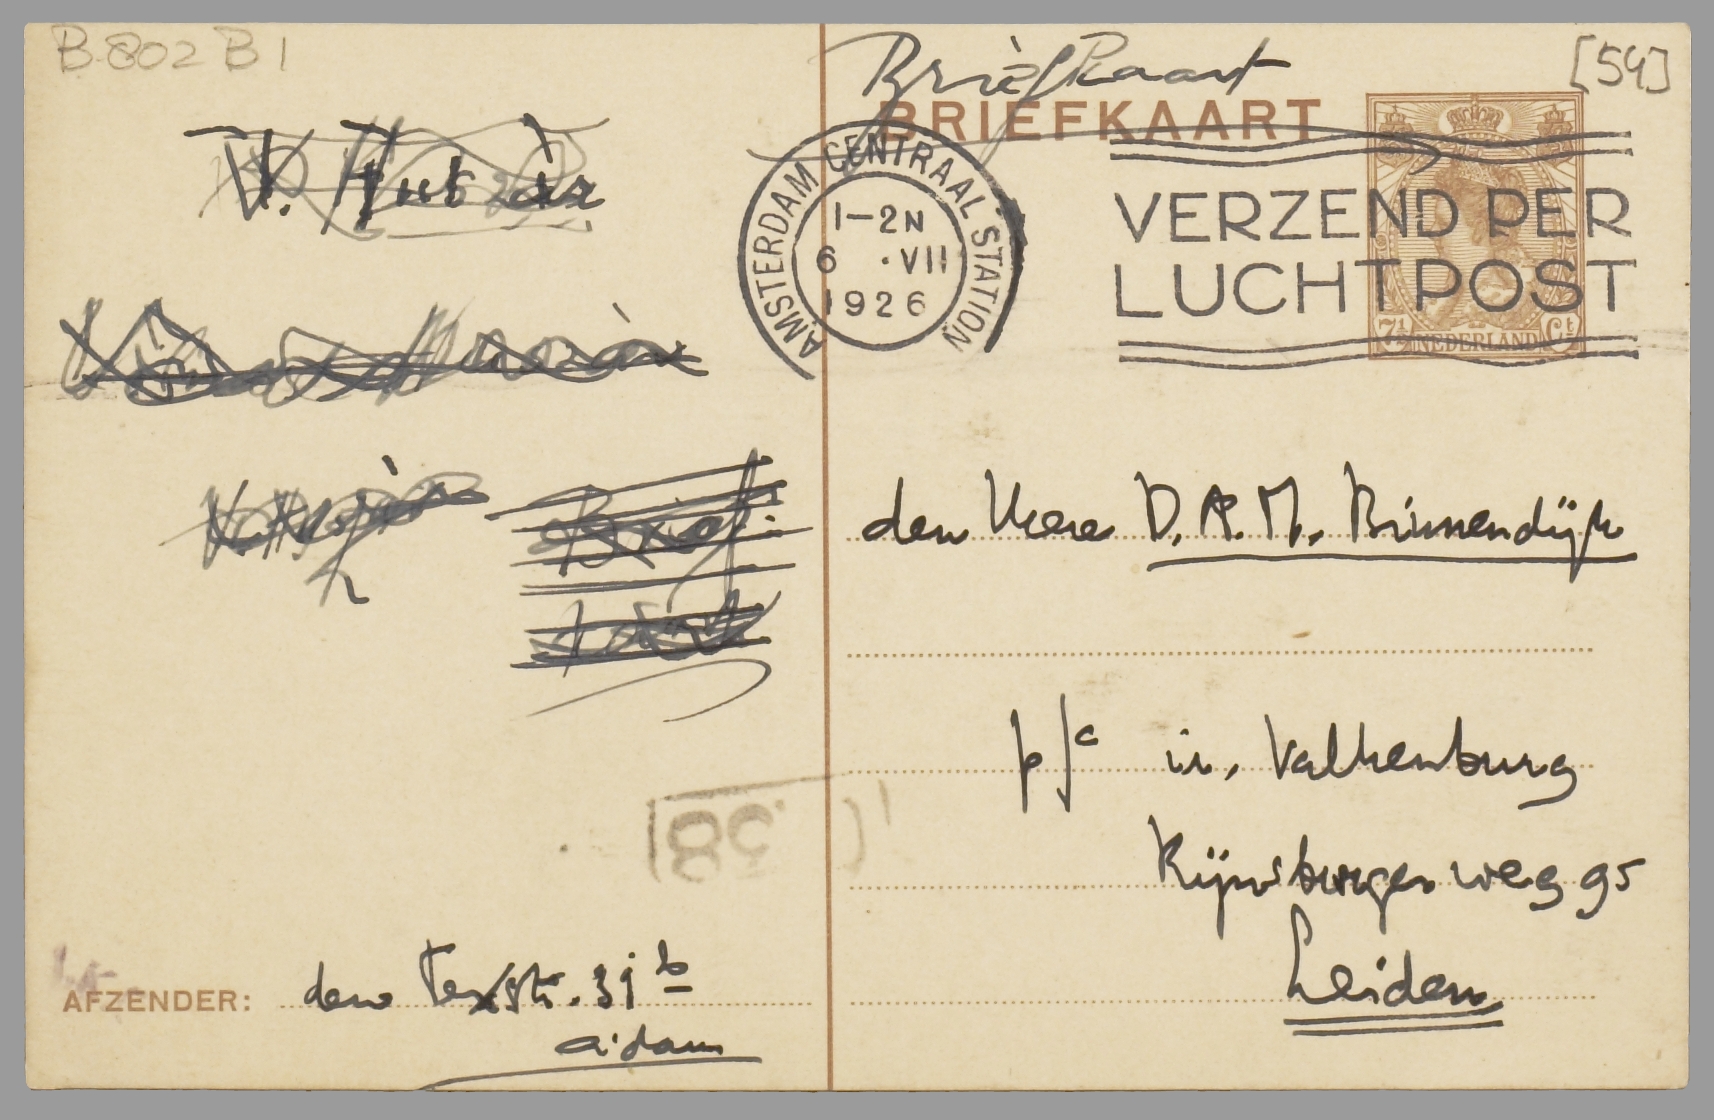 B 802 B 1
Briefkaart
[54]
BRIEFKAART
AMSTERDAM CENTRAAL STATION
1-2N
6 ·VII
1926
VERZEND PER
LUCHTPOST
7½ NEDERLAND Ct
den Heer D. A. M. Binnendijk
p/c ir. Valkenburg
Rijnsburger weg 95
Leiden
AFZENDER: den Texstr. 31 b
A'dam